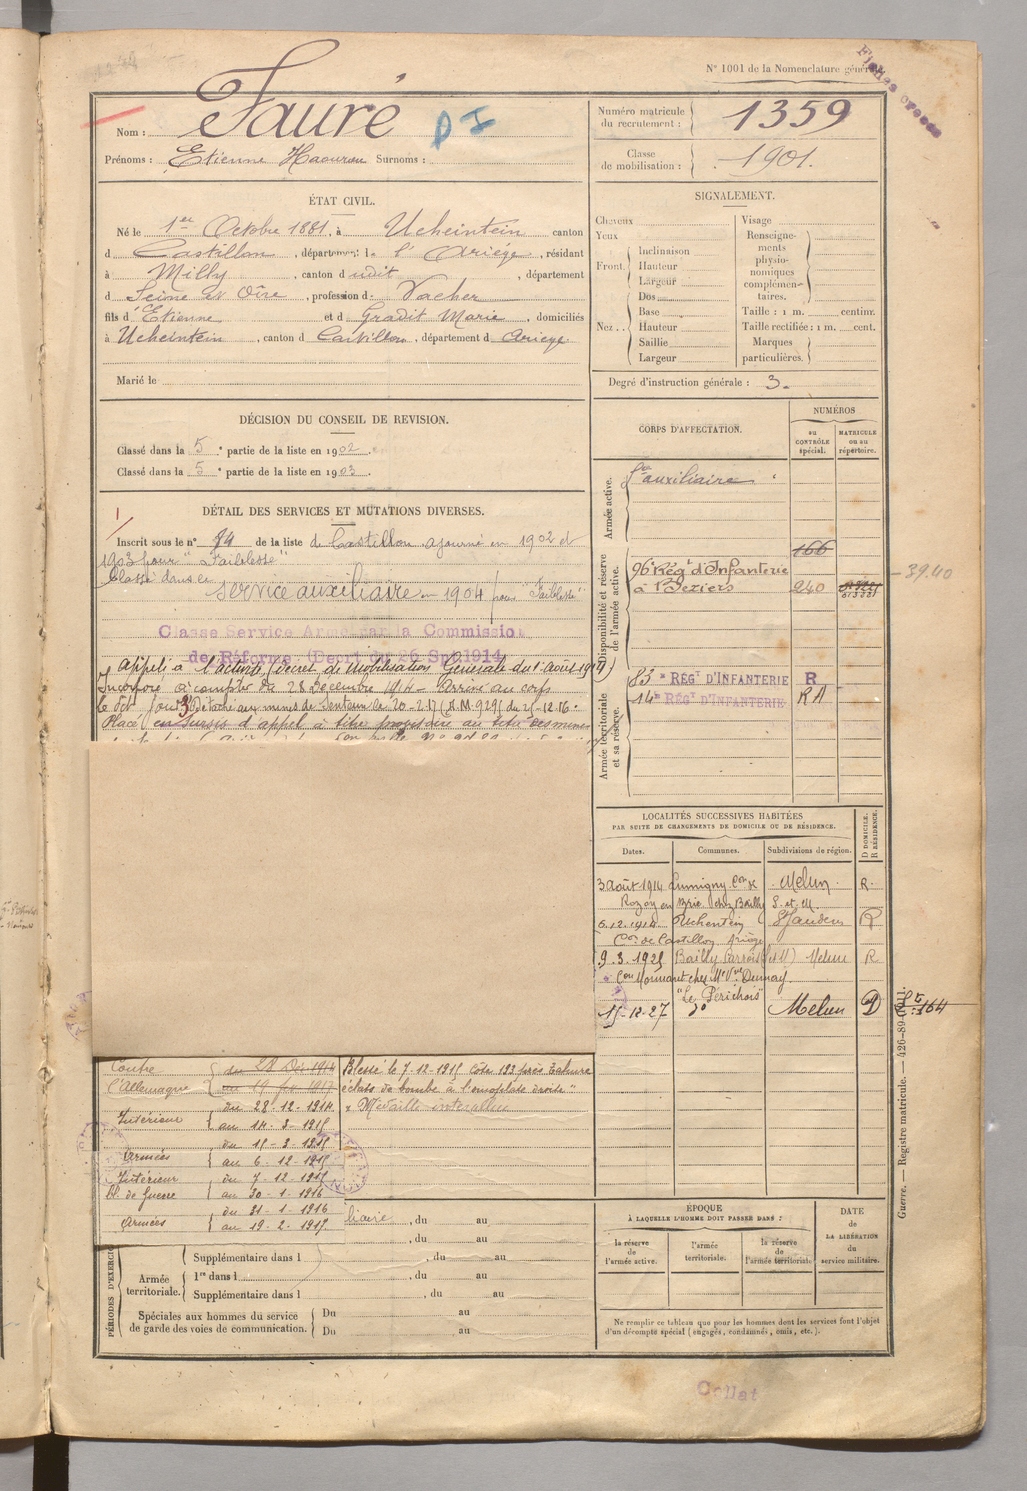 N° 1001 de la Nomenclature générale
Fiches
Nom : Fauré
D I
Prénoms : Etienne Surnoms :
Numéro matricule du recrutement : 1359
Classe de mobilisation : 1901.
ÉTAT CIVIL.
Né le 1er Octobre 1881, à Ucheintein canton
d Castillon, département de l'Ariége, résidant
à Milly, canton dudit, département
d Seine et Oise, profession de Vacher
fils d'Etienne et d Gradit Marie, domiciliés
à Ucheintein, canton d Castillon, département d Ariège
Marié le
SIGNALEMENT.
Cheveux
Yeux
Front. Inclinaison
Hauteur
Largeur
Nez. Dos
Base
Hauteur
Saillie
Largeur
Visage
Renseignements physionomiques complémentaires.
Taille : 1 m. centim.
Taille rectifiée : 1 m. cent.
Marques particulières.
Degré d'instruction générale : 3.
DÉCISION DU CONSEIL DE REVISION.
Classé dans la 5e partie de la liste en 1902.
Classé dans la 5e partie de la liste en 1903.
DÉTAIL DES SERVICES ET MUTATIONS DIVERSES.
Inscrit sous le n° 84 de la liste de Castillon ajourné en 1902 et
1903 pour "Faiblesse"
Classé dans le
Service auxiliaire en 1904 pour "Faiblesse"
Classé Service Armé par la Commission
de Réforme (Décret du 26 Sept 1914
Appelé à l'activité (Décret de Mobilisation Générale du 1er Août 1914)
Incorporé à compter du 28 Décembre 1914 – Arrivé au corps
le dit jour Détaché aux mines de Sentein le 20.2.17 (A.M. 929 du 25.12.16.
Placé en sursis d'appel à titre au titre des mines
CORPS D'AFFECTATION.
NUMÉROS
au CONTRÔLE spécial.
MATRICULE ou au répertoire.
Armée active.
Sce auxiliaire
Disponibilité et réserve de l'armée active.
166
96e Régt d'Infanterie
à Béziers 240
39.40
Armée territoriale et sa réserve.
83e RÉGt D'INFANTERIE R
14e RÉGt D'INFANTERIE RA
LOCALITÉS SUCCESSIVES HABITÉES
PAR SUITE DE CHANGEMENTS DE DOMICILE OU DE RÉSIDENCE.
Dates. Communes. Subdivisions de région. D DOMICILE. R RÉSIDENCE.
3 août 1914 Lumigny Con de Melun R.
Rozoy en Brie chez Bailly S. et M.
6.12.1914 Uchentein St Gaudens R
Con de Castillon Ariège
9.3.1925 Bailly Carrois (S et M) Melun R
Con Mormant chez Mme Vve
"Le Périchois"
15-12-27 do Melun D
164
Contre l'Allemagne du 28 Déc 1914
au 19 fév 1917
Intérieur du 28-12-1914
au 14-3-1915
Armées du 15-3-1915
au 6-12-1915
Intérieur bl. de guerre du 7-12-1915
au 30-1-1916
Armées du 31-1-1916
au 19-2-1917
Blessé le 7-12-1915 côte 193 près Tahure
éclats de bombe à l'omoplate droite"
"Médaille interalliée
liaire, du au
, du au
PÉRIODES D'EXERCICES
Supplémentaire dans l , du au
Armée territoriale. 1re dans l , du au
Supplémentaire dans l , du au
Spéciales aux hommes du service de garde des voies de communication. Du au
Du au
ÉPOQUE
À LAQUELLE L'HOMME DOIT PASSER DANS :
la réserve de l'armée active.
l'armée territoriale.
la réserve de l'armée territoriale
DATE de LA LIBÉRATION du service militaire.
Ne remplir ce tableau que pour les hommes dont les services font l'objet
d'un décompte spécial (engagés, condamnés, omis, etc.).
Guerre. — Registre matricule. — 426-89-1911.
Collat